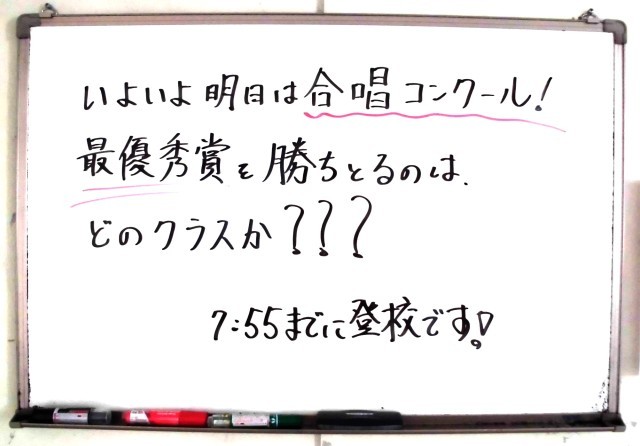 いよいよ明日は合唱コンクール!
最優秀賞を勝ちとるのは、
どのクラスか???
7:55までに登校です!